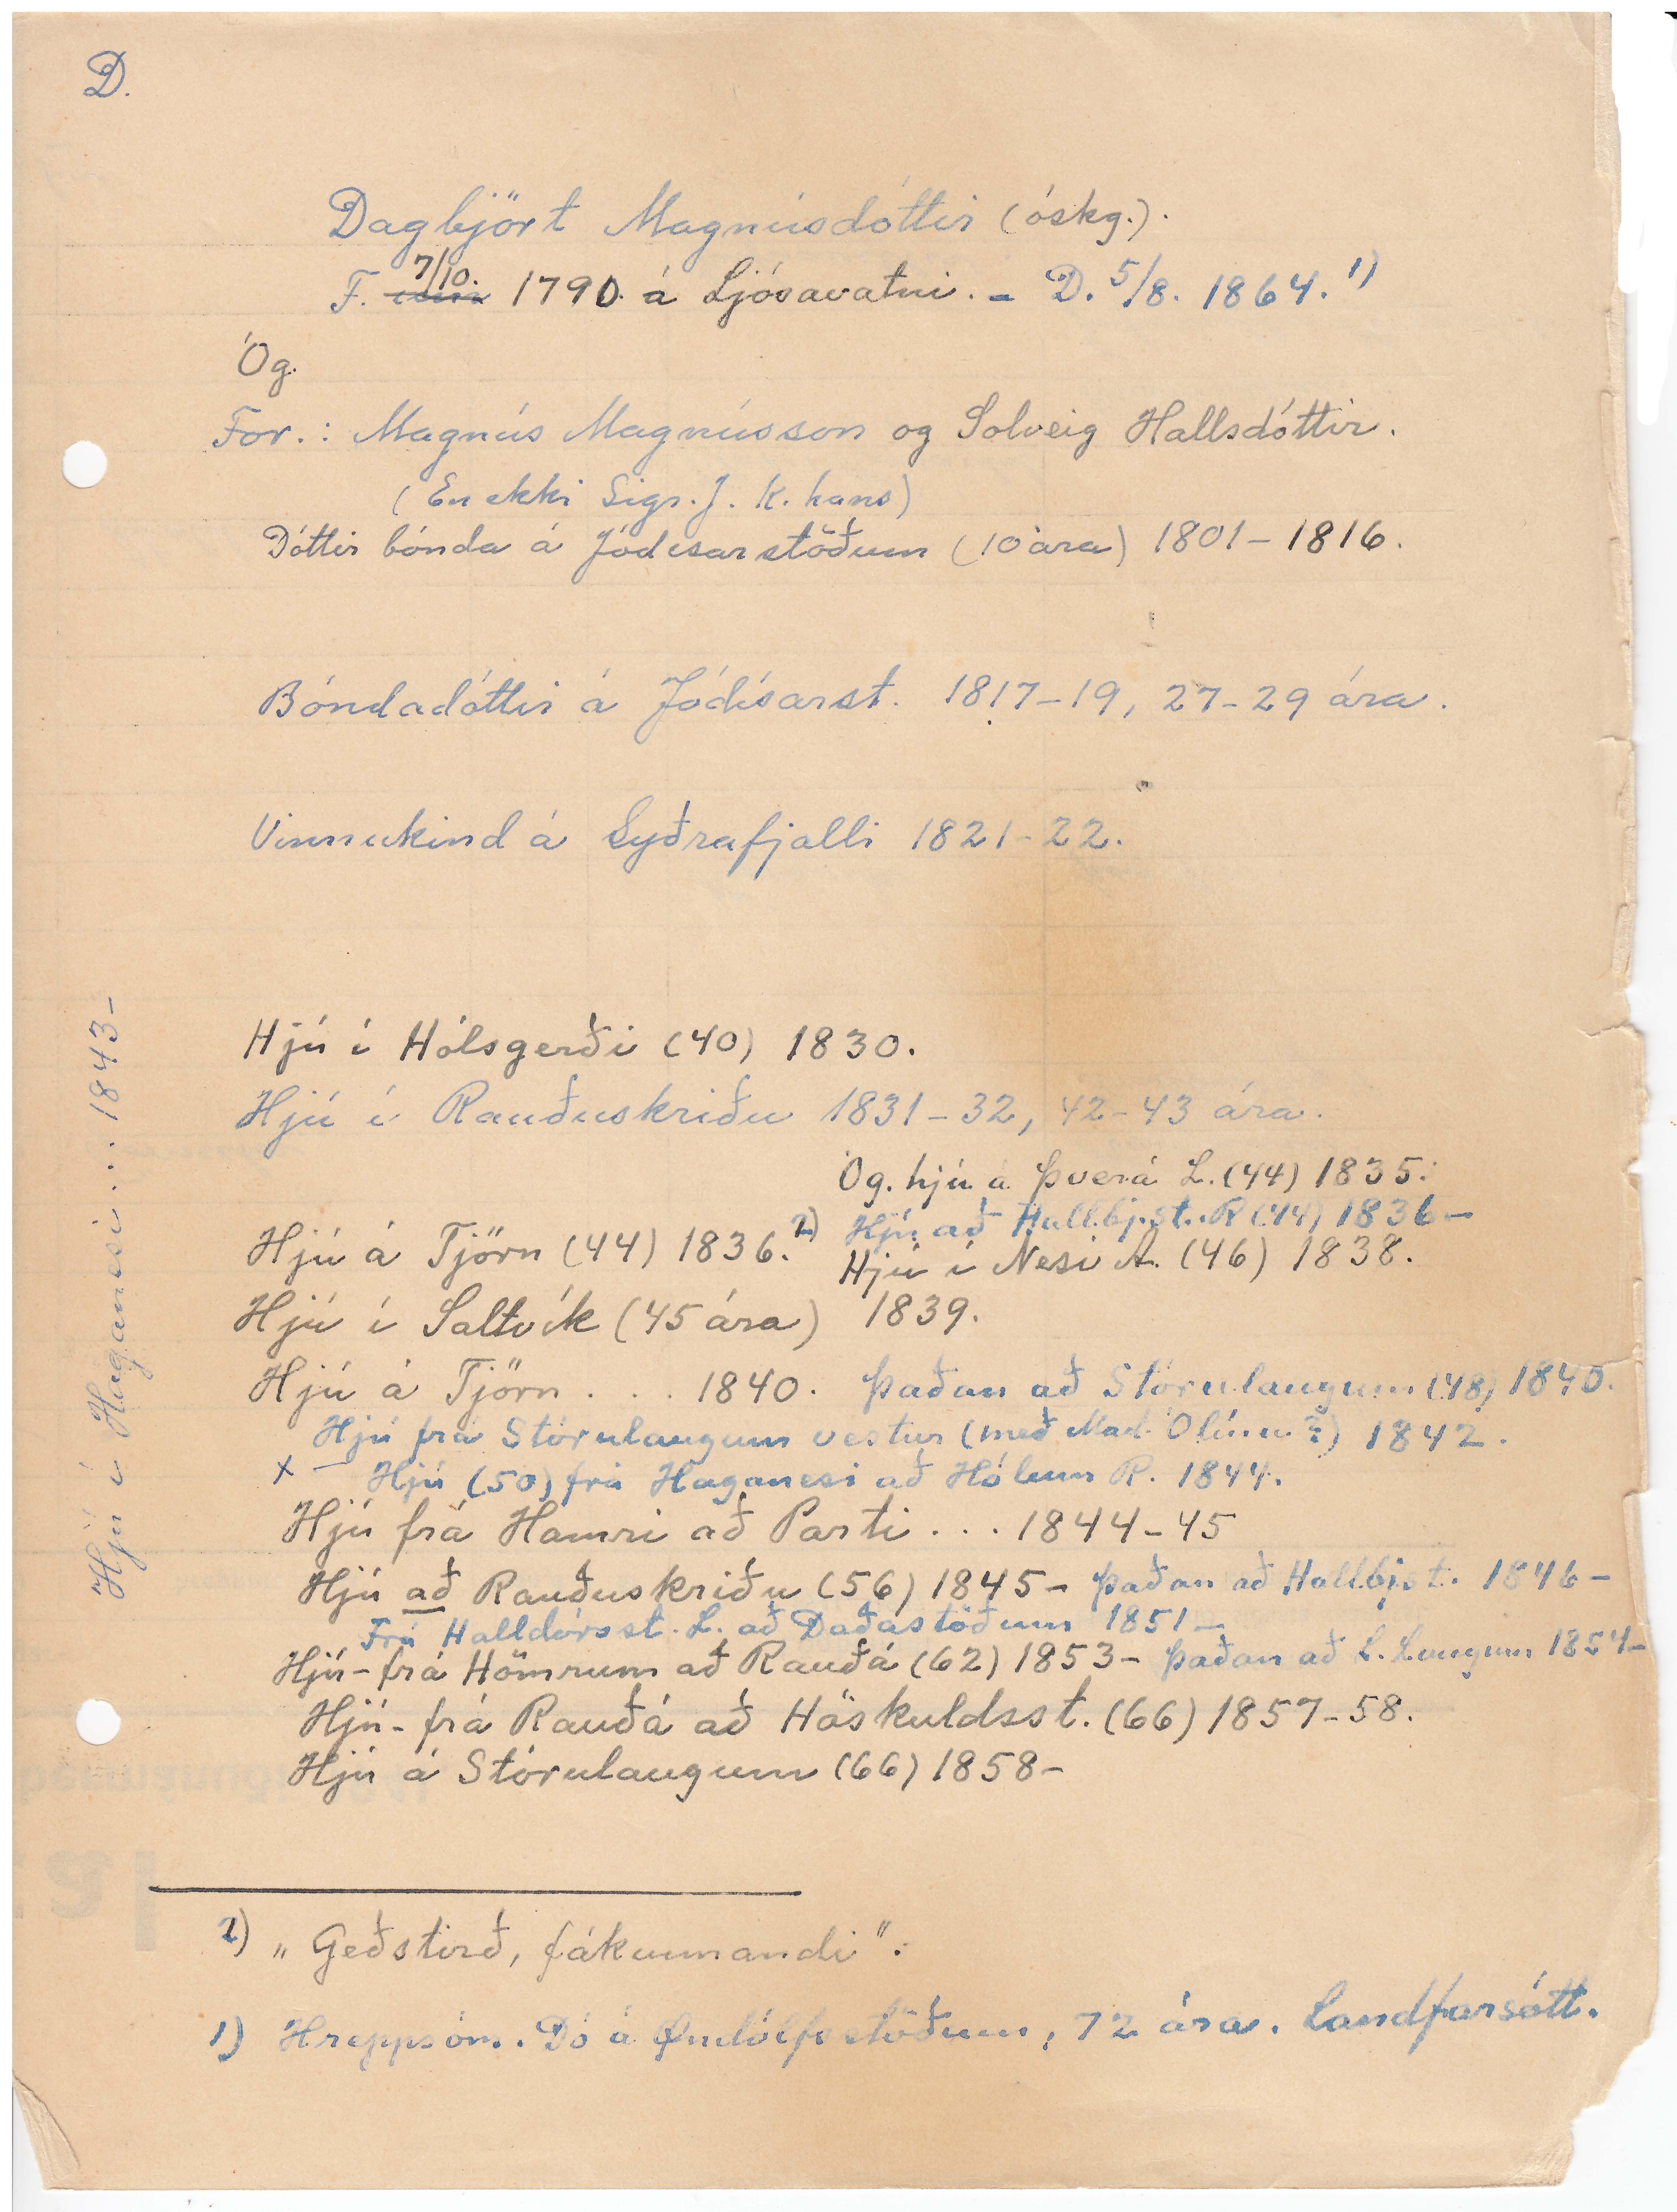 D.
Dagbjört Magnúsdóttir (óskg.).
F. 7/10. 1790. á Ljósavatni. - D. 5/8. 1864. 1)
Óg.
For.: Magnús Magnússon og Solveig Hallsdóttir.
(En ekki Sigr. J. k. hans)
Dóttir bónda á Jódísarstöðum (10 ára) 1801-1816.
Bóndadóttir á Jódísarst. 1817-19, 27-29 ára.
Vinnukind á Syðrafjalli 1821-22.
Hjú í Hólsgerði (40) 1830.
Hjú í Rauðuskriðu 1831-32, 42-43 ára.
Óg. hjú á Þverá L. (44) 1835.
Hjú að Hallbj.st. R (44) 1836-
Hjú á Tjörn (44) 1836. 2)
Hjú í Nesi A. (46) 1838.
Hjú í Saltvík (45 ára) 1839.
Hjú á Tjörn . . . 1840. Þaðan að Stórulaugum (48) 1840.
Hjú frá Stórulaugum vestur (með Mad. Ólínu ?) 1842.
x - Hjú (50) frá Haganesi að Hólum R. 1844.
Hjú frá Hamri að Parti . . . 1844-45
Hjú að Rauðuskriðu (56) 1845- Þaðan að Hallbjst. 1846-
Frá Halldórsst. L. að Daðastöðum 1851-
Hjú - frá Hömrum að Rauðá (62) 1853- Þaðan að L. Laugum 1854-
Hjú - frá Rauðá að Höskuldsst. (66) 1857-58.
Hjú á Stórulaugum (66) 1858-
Hjú í Haganesi . . . 1843-
2) „Geðstirð, fákunnandi“.
1) Hreppsóm. Dó á Öndólfsstöðum, 72 ára. Landfarsótt.